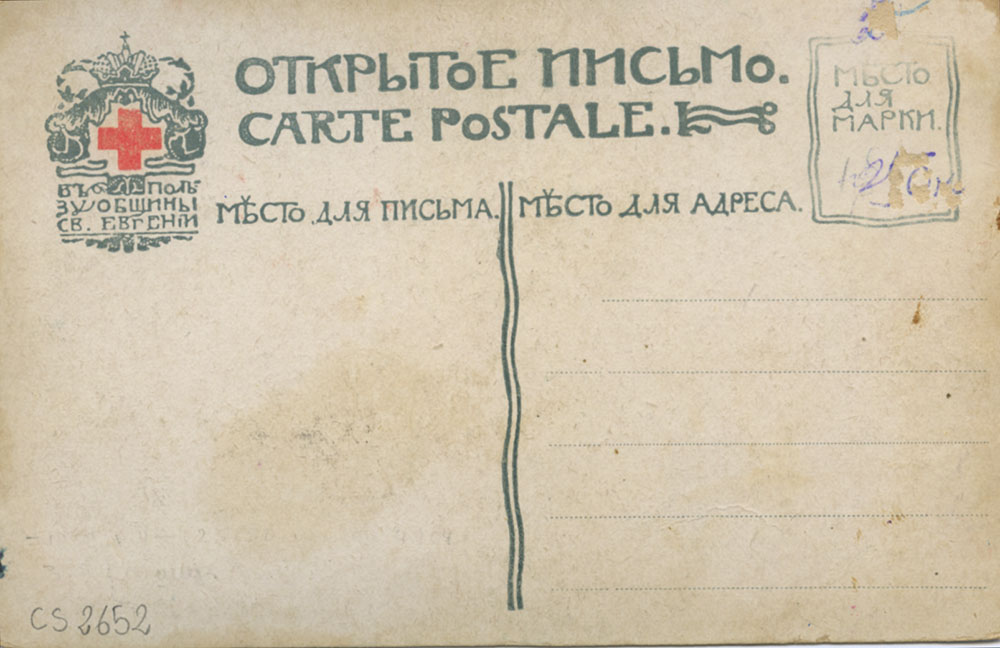 ОТКРЫТОЕ ПИСЬМО.
CARTE POSTALE.
МѢСТО
ДЛЯ
МАРКИ.
ВЪ ПОЛЬ
ЗУ ОБЩИНЫ
СВ. ЕВГЕНІИ
МѢСТО ДЛЯ ПИСЬМА.
МѢСТО ДЛЯ АДРЕСА.
CS 2652